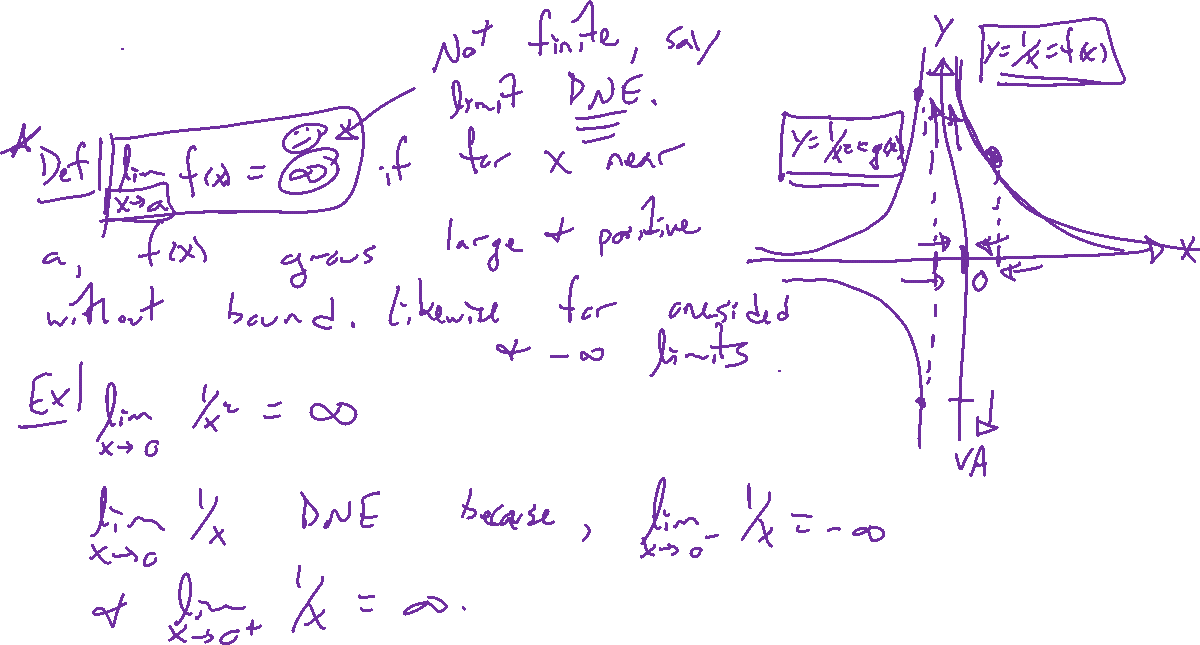 Not finite, say
limit DNE.
Def lim f(x) = ∞ if for x near
x→a
a, f(x) grows large & positive
without bound. Likewise for onesided
& -∞ limits.
Ex lim 1/x² = ∞
x→0
lim 1/x DNE because, lim 1/x = -∞
x→0 x→0⁻
& lim 1/x = ∞.
x→0⁺
Y
y=1/x=f(x)
y=1/x²=g(x)
X
0
VA